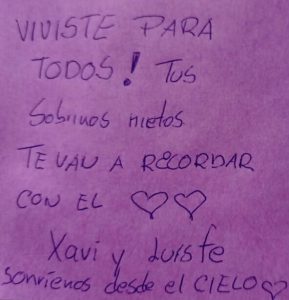 VIVISTE PARA
TODOS! Tus
Sobrinos nietos
TE VAN A RECORDAR
CON EL ♡♡
Xavi y Luisfe
sonrienos desde el CIELO♡